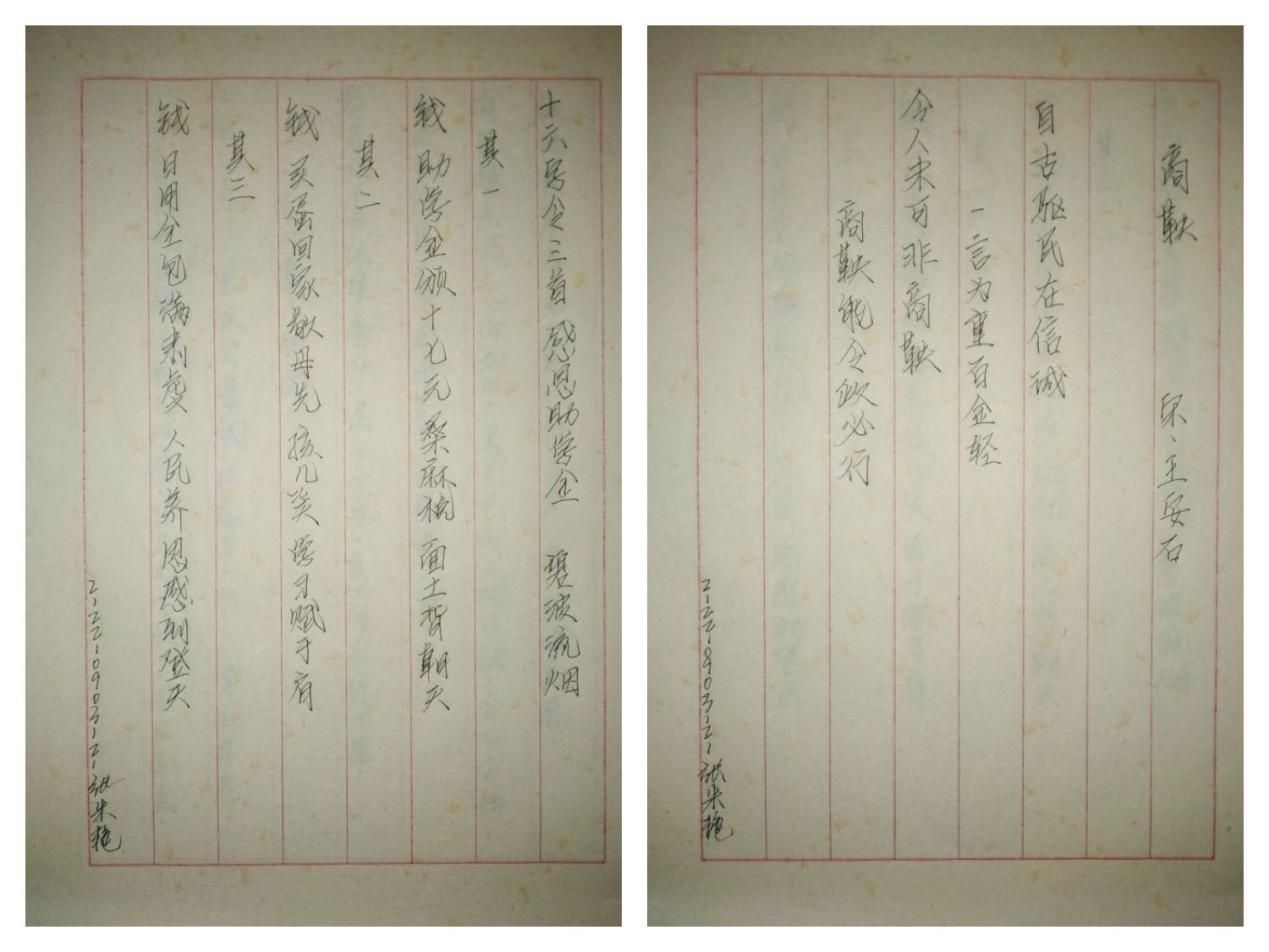 十六字令三首 感恩助学金 碧波流烟
其一
钱 助学金颁十七元 桑麻桃 面土背朝天
其二
钱 买蛋回家敬母先 孩儿笑 学习赋于肩
其三
钱 日用全包满剩处 人民养 恩感到登天
2-22-0903-2-张朱艳
商鞅 宋·王安石
自古驱民在信诚
一言为重百金轻
今人未可非商鞅
商鞅能令政必行
2-22-0903-2-张朱艳